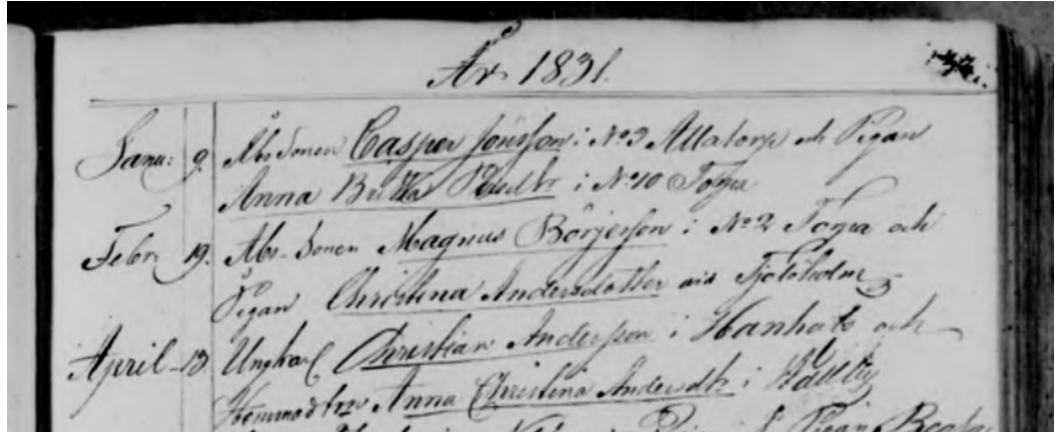 År 1831.
Janu: 9. Åbo Sonen Casper Jönsson i No 3 Allatorp och Pigan
Anna Britta i No 10 Togra
Febr 19. Åbo-Sonen Magnus Börjesson i No 2 Togra och
Pigan Christina Andersdotter vid Tjolöholm
April 13 Ungkarl Christian Andersson i Hanhals och
Hemmadtr Anna Christina Andersdtr i
Pigan Beata